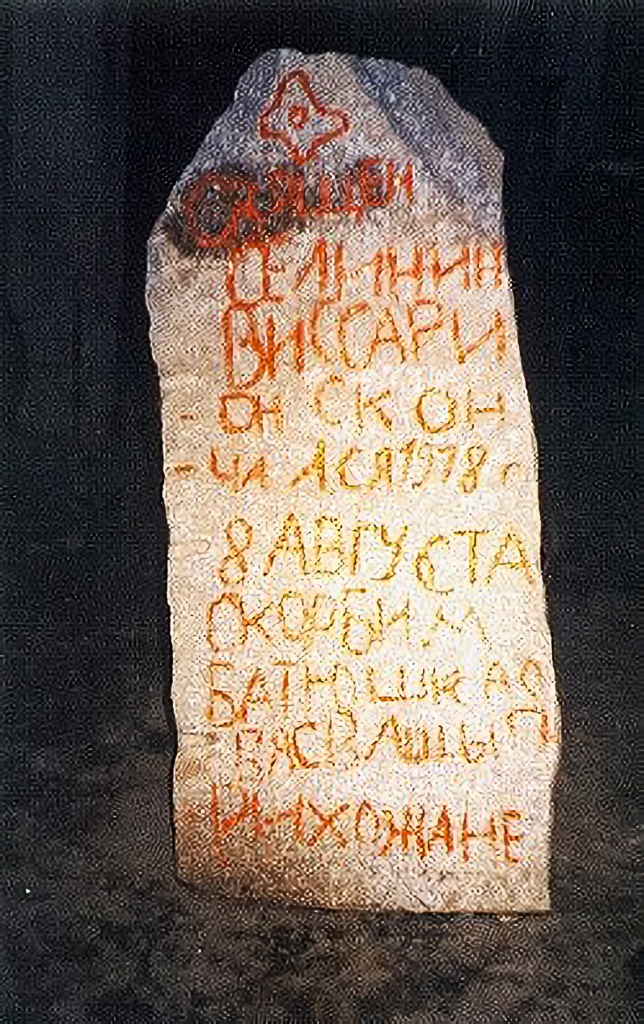 СВЯЩЕН
ВИССАРИ
- ОН СКОН
- ЧАЛСЯ 1978 г
8 АВГУСТА
СКОРБИМ
БАТЮШКА
ВАС ВАШЫ П
РИХОЖАНЕ